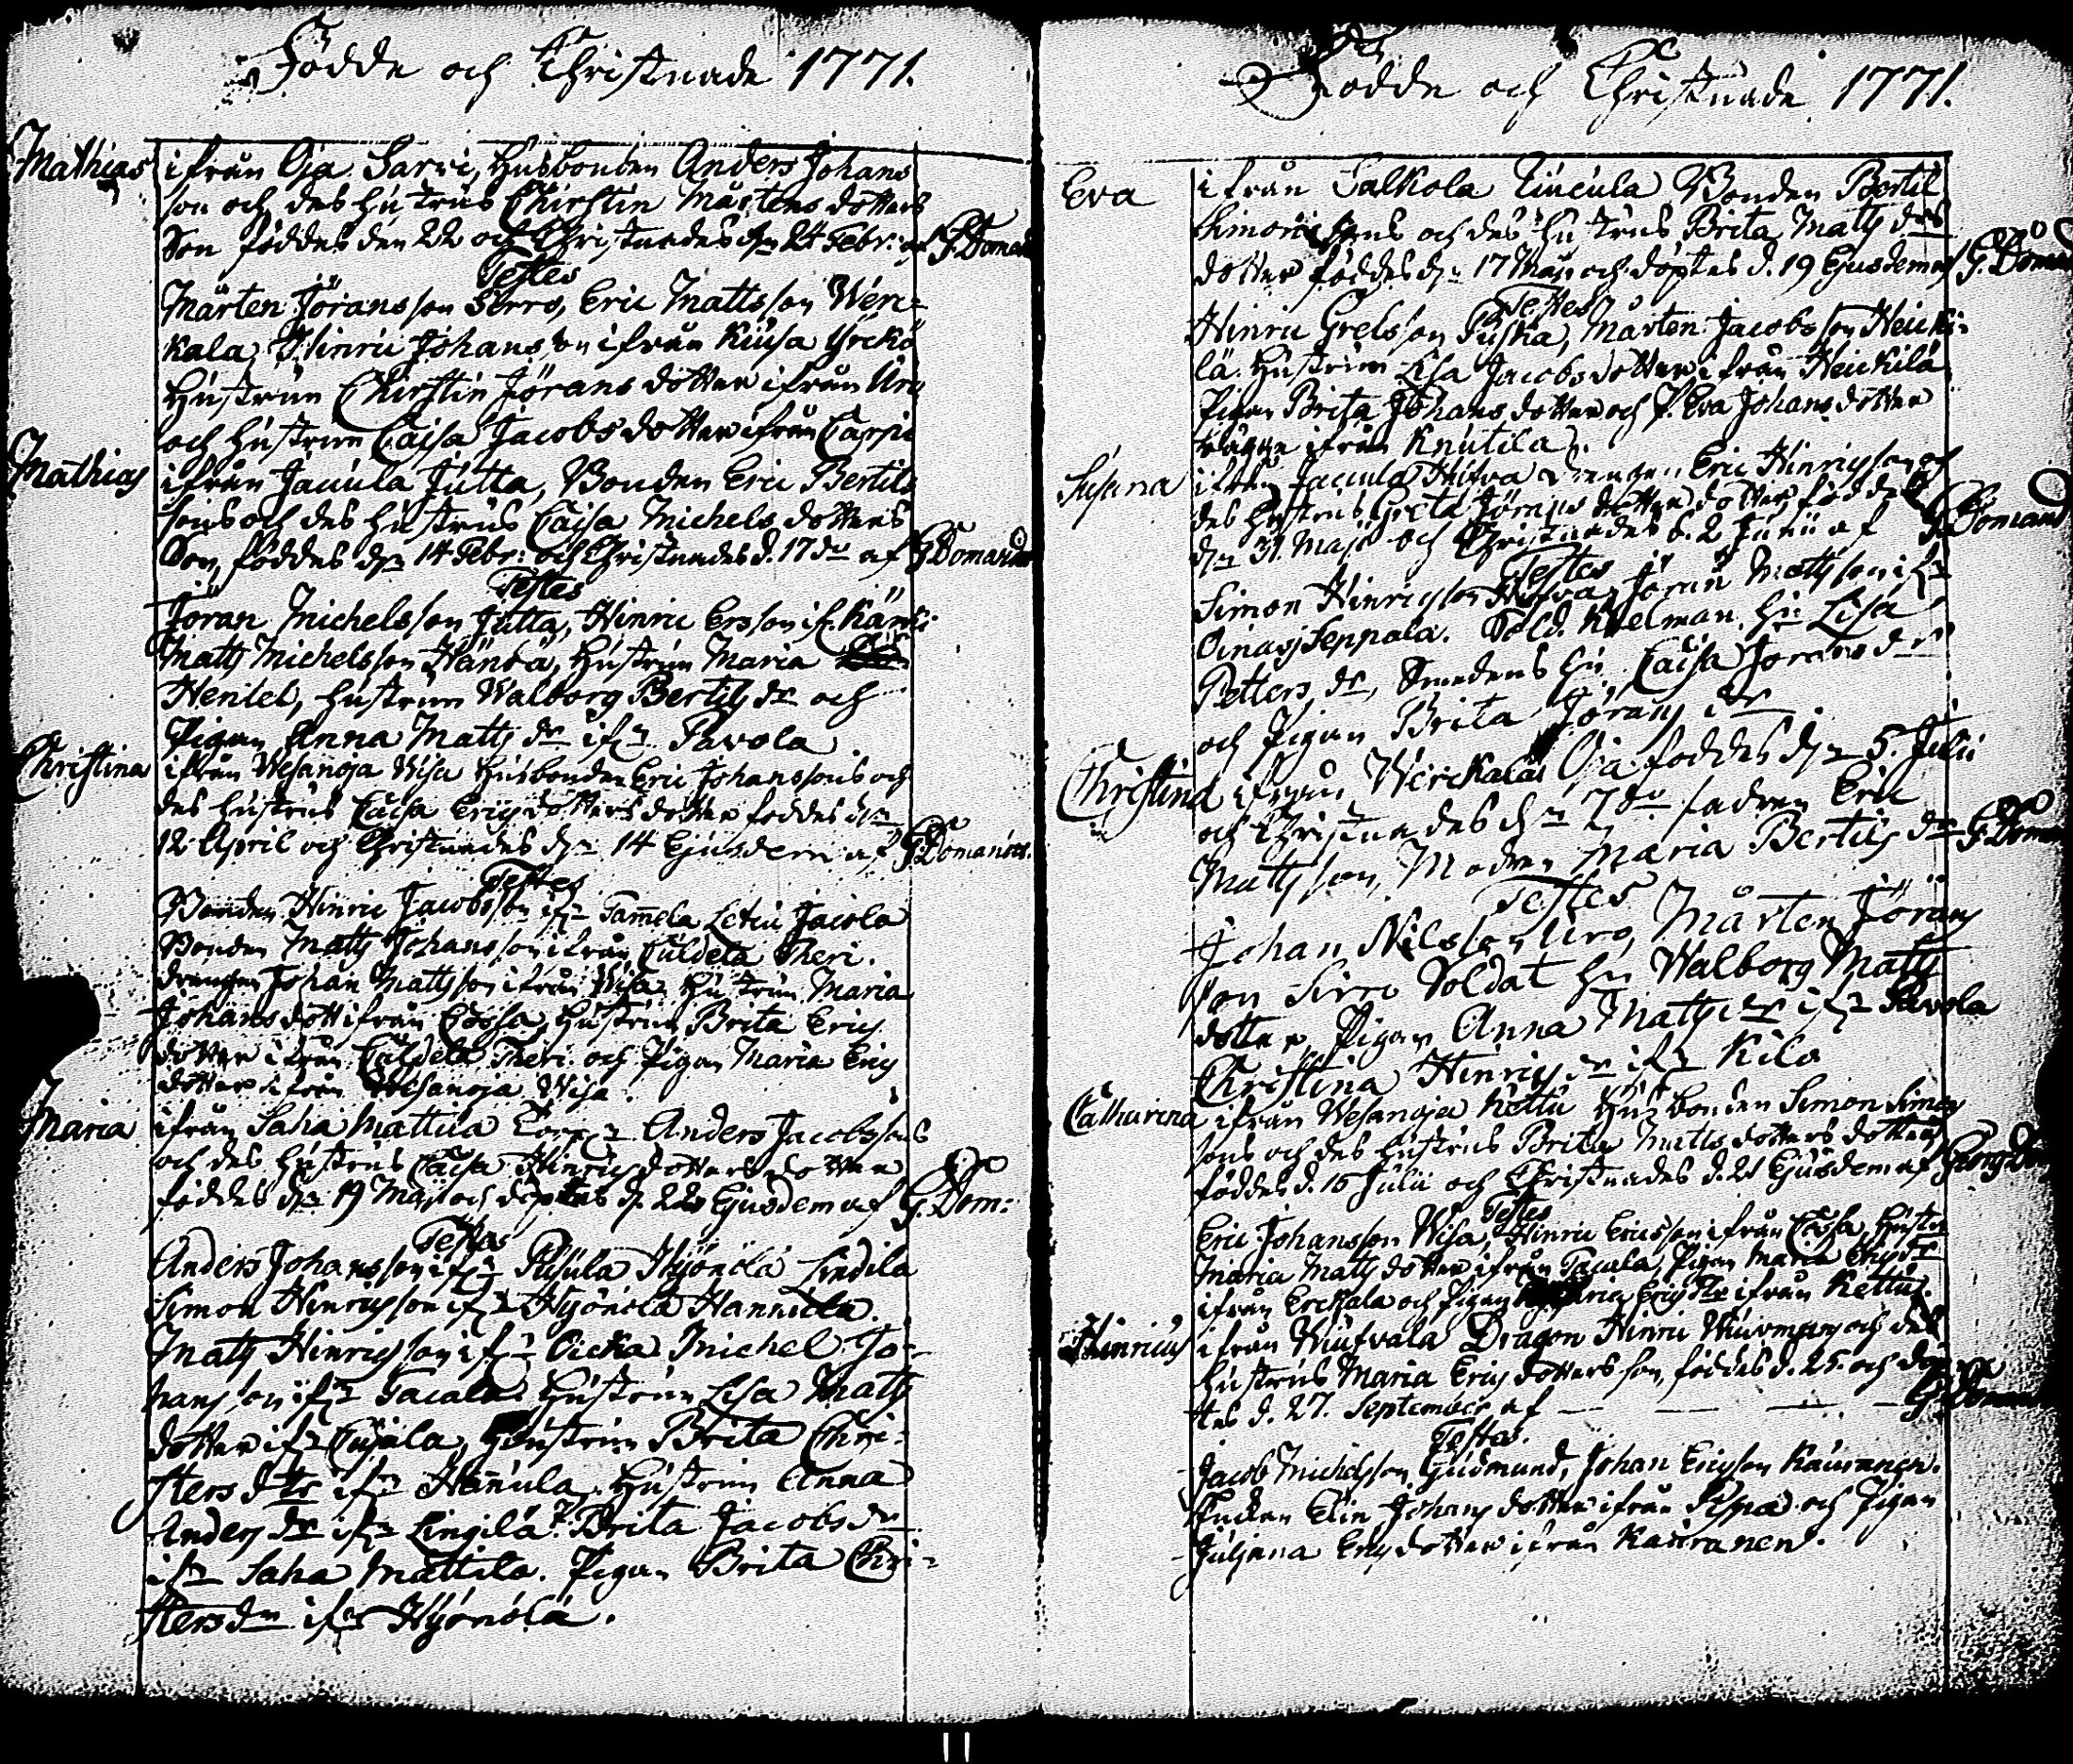 Födde och Christnade 1771.
Mathias ifrån Oja Sarvi, Husbonden Anders Johans
son och des hustrus Chirstin Mårtens dotters
Son föddes den 22 och Christnades dn 24 Febr: af G. Doman
Testes
Mårten Jöransson Sirro, Eric Mattsson Wer-
kala, Hinric Johansson ifrån Kiusa Yrckö
Hustrun Chirstin Jörans dotter ifrån Uro
och hustrun Caisa Jacobs dotter ifrån Carpi
Mathias ifrån Jaúúla Jutta, Bonden Eric Bertils
sons och des hustrus Caisa Michels dotters
Son, föddes dn 14 Febr: och Christnades d. 17 do af G. Domand
Testes
Jöran Michelsson Jutta, Hinric Ersson if. Kärki
Matts Michelsson Hänsä, Hustrun Maria
Hentel, hustrun Walborg Bertils dr och
Pigan Anna Matts dr ifn Pavola
Christina ifrån Wesanoja Wisa Husbonden Eric Johanssons och
des hustrus Caisa Erics dotters dotter föddes dn
12 April och Christnades dn 14 Ejusdem af G. Domander.
Testes
Bonden Hinric Jacobsson ifn Tamela Letku Jacola
Bonden Matts Johansson ifrån Culdela Theri.
drengen Johan Mattsson ifrån Wisa Hustrun Maria
Johans dott ifrån Cåssa, Hustrun Brita Erics
dotter ifrån Culdela Theri och Pigan Maria Erics
dotter ifrån Wesanoja Wisa.
Maria ifrån Saha Mattila Torpn Anders Jacobssons
och des hustrus Caisa Hinrics dotters dotter
föddes dn 19 Maji och döptes d. 22 Ejusdem af G. Dom:
Testes
Anders Johansson ifn Pusula Hyönölä Lindila
Simon Hinricsson ifn Hyönölä Hannula.
Matts Hinricsson ifn Oicka Michel Jo-
hansson ifn Tacala Hustrun Lisa Matts
dotter ifn Cujala, Hustrun Brita Chri-
sters dtr ifn Hanúla, Hustrun Anna
Anders dr ifn Lingilä P. Brita Jacobs dr
ifn Saha Mattila. Pigan Brita Chri-
sters dr ifn Hyönölä.
Födde och Christnade 1771.
Eva ifrån Salkola Bonden Bertil
Simonssons och des Hustrus Brita Matts drs
dotter föddes dn 17 Maji och döptes d. 19 Ejusdem af G. Doman
Testes
Hinric Grelsson Puska, Mårten Jacobsson Heicki-
lä. Hustrun Lisa Jacobsdotter ifrån Heickilä
Pigan Brita Johans dotter och P. Eva Johans dotter
bägge ifrån Knutila.
Susana ifrån Jaúúla drengen Eric Hinricsson och
des hustrus Greta Jörans dotter dotter föddes
dn 31. Maji och Christnades d. 2 Junii af G. Domand
Testes
Simon Hinricsson Jöran Mattsson ifn
Oinasj Seppala. Sold. hu Lisa
Petters dr, Smedens hu. Caisa Jörans dr
och Pigan Brita Jörans dr
Christina ifrån Werckala Oja föddes dn 5. Julii
och Christnades dn 7 do fadren Eric
Mattsson, Modren Maria Bertils dr G. Doman
Testes
Johan Nilsson Uro, Mårten Jörans
son Sirro Soldat hu Walborg Matts
dotter, Pigan Anna Matts dr ifn Pavola
Christina Hinrics dr ifn Kila
Catharina ifrån Wesanoja Kettu Husbonden Simon Simons
sons och des hustrus Brita Matts dotters dotter
föddes d. 16 Julii och Christnades d. 21 Ejusdem af Georg Dom
Testes
Eric Johansson Wisa, Hinric Ericsson ifrån Cåssa, Hustru
Maria Matts dotter ifrån Tacala, Pigan Maria Erics dr
ifrån Erckala och Pigan Maria Erics dtr ifrån Kettu.
Hinricus ifrån Dragon Hinric och des
hustrus Maria Erics dotters son, föddes d. 25. och döp-
tes d. 27. September af G. Doman
Testes.
Jacob Michelsson Gudmund, Johan Ericsson Kauranen.
Enckan Elin Johans dotter ifrån och Pigan
Juljana Erics dotter ifrån Kauranen.
11